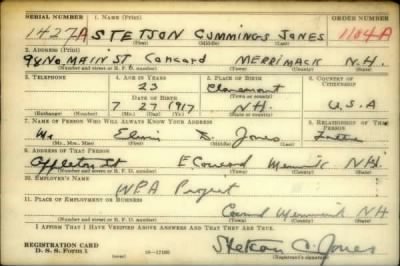 SERIAL NUMBER 1. NAME (Print) ORDER NUMBER
1427A STETSON CUMMINGS JONES 1104A
(First) (Middle) (Last)
2. ADDRESS (Print)
98 No. MAIN ST. Concord MERRIMACK N.H.
(Number and street or R. F. D. number) (Town) (County) (State)
3. TELEPHONE 4. AGE IN YEARS 5. PLACE OF BIRTH 6. COUNTRY OF CITIZENSHIP
23 Claremont
DATE OF BIRTH (Town or county)
7 27 1917 N.H. U.S.A
(Exchange) (Number) (Mo.) (Day) (Yr.) (State or country)
7. NAME OF PERSON WHO WILL ALWAYS KNOW YOUR ADDRESS 8. RELATIONSHIP OF THAT PERSON
Mr. Elwin S. Jones Father
(Mr., Mrs., Miss) (First) (Middle) (Last)
9. ADDRESS OF THAT PERSON
Appleton St E. Concord Merrimack N.H.
(Number and street or R. F. D. number) (Town) (County) (State)
10. EMPLOYER'S NAME
WPA Project
11. PLACE OF EMPLOYMENT OR BUSINESS
Concord Merrimack NH
(Number and street or R. F. D. number) (Town) (County) (State)
I AFFIRM THAT I HAVE VERIFIED ABOVE ANSWERS AND THAT THEY ARE TRUE.
REGISTRATION CARD
D. S. S. Form 1 16-17105 Stetson C. Jones
(Registrant's signature)